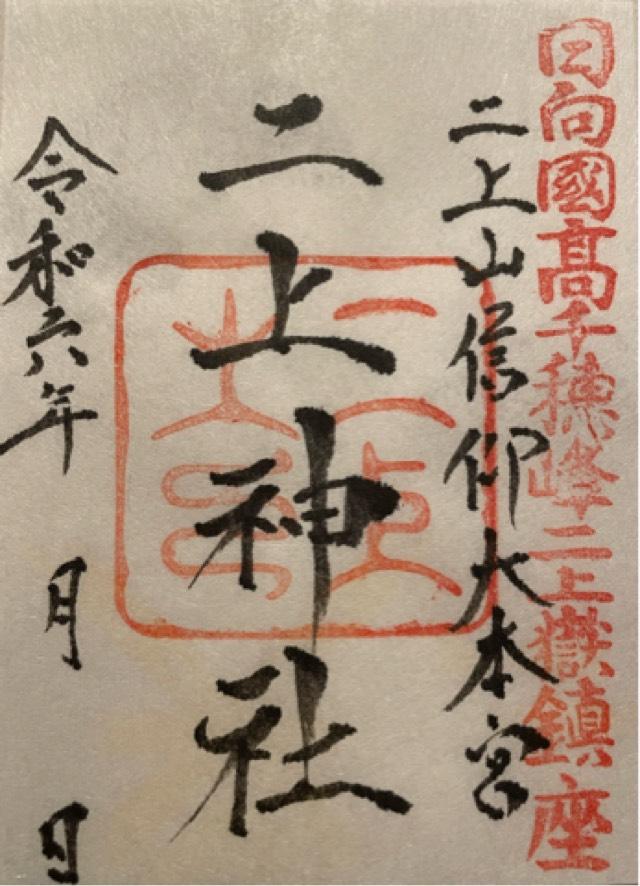 日向國高千穂峰二上嶽鎮座
二上山信仰大本宮
二上神社
令和六年 月 日